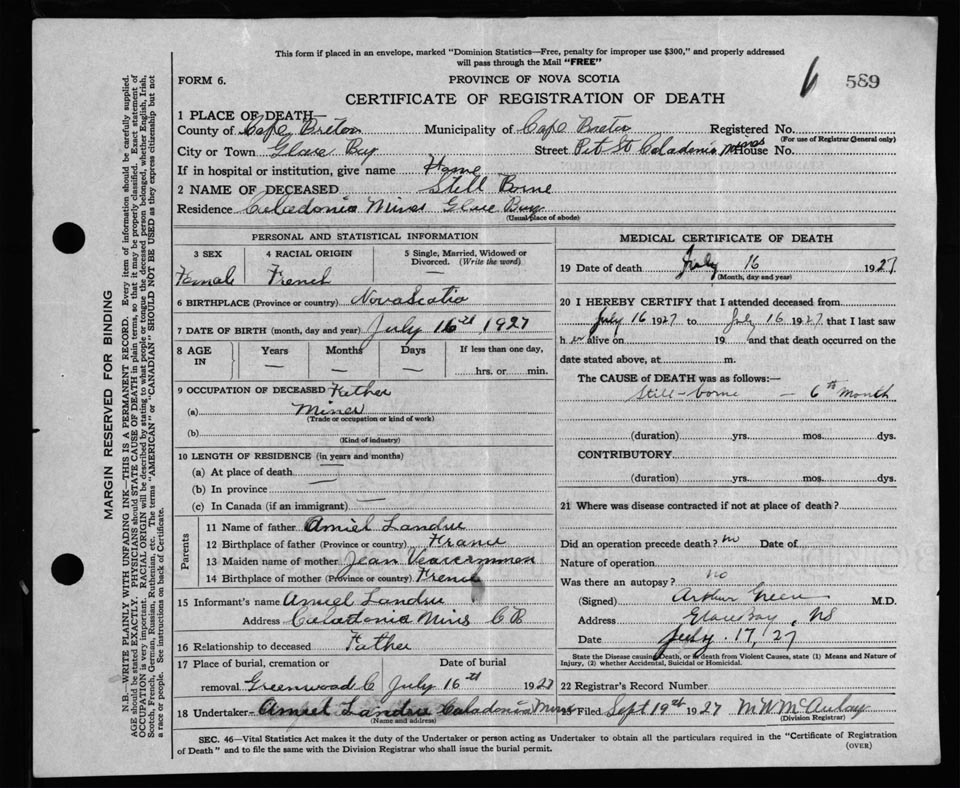 This form if placed in an envelope, marked "Dominion Statistics—Free, penalty for improper use $300," and properly addressed
will pass through the Mail "FREE"
FORM 6.
PROVINCE OF NOVA SCOTIA
6 589
CERTIFICATE OF REGISTRATION OF DEATH
1 PLACE OF DEATH—
County of Cape Breton Municipality of Cape Breton Registered No.
(For use of Registrar General only)
City or Town Glace Bay Street Pit St Caladonia Mines House No.
If in hospital or institution, give name Home
2 NAME OF DECEASED Still Borne
Residence Caledonia Mines Glace Bay
(Usual place of abode)
PERSONAL AND STATISTICAL INFORMATION
3 SEX 4 RACIAL ORIGIN 5 Single, Married, Widowed or Divorced. (Write the word)
Female French —
6 BIRTHPLACE (Province or country) Nova Scotia
7 DATE OF BIRTH (month, day and year) July 16th 1927
8 AGE IN Years Months Days If less than one day,
— — — hrs. or min.
9 OCCUPATION OF DECEASED Father
(a) Miner
(Trade or occupation or kind of work)
(b)
(Kind of industry)
10 LENGTH OF RESIDENCE (in years and months)
(a) At place of death —
(b) In province —
(c) In Canada (if an immigrant) —
Parents
11 Name of father Amiel Landrie
12 Birthplace of father (Province or country) France
13 Maiden name of mother Jean
14 Birthplace of mother (Province or country) French
15 Informant's name Amiel Landrie
Address Caledonia Mines C B
16 Relationship to deceased Father
17 Place of burial, cremation or Date of burial
removal Greenwood C July 16th 1927
18 Undertaker— Amiel Landrie Caladonia Mines
(Name and address)
MEDICAL CERTIFICATE OF DEATH
19 Date of death July 16 1927
(Month, day and year)
20 I HEREBY CERTIFY that I attended deceased from
July 16 1927 to July 16 1927 that I last saw
h er alive on 19 and that death occurred on the
date stated above, at m.
The CAUSE OF DEATH was as follows:—
Still-borne — 6th month
(duration) yrs. mos. dys.
CONTRIBUTORY
(duration) yrs. mos. dys.
21 Where was disease contracted if not at place of death?
Did an operation precede death? no Date of
Nature of operation
Was there an autopsy? no
(Signed) Arthur Green M.D.
Address Glace Bay, NS
Date July 17/27
State the Disease causing Death, or in death from Violent Causes, state (1) Means and Nature of
Injury, (2) whether Accidental, Suicidal or Homicidal.
22 Registrar's Record Number
23 Filed Sept 19th 1927 M W McAulay
(Division Registrar)
SEC. 46—Vital Statistics Act makes it the duty of the Undertaker or person acting as Undertaker to obtain all the particulars required in the "Certificate of Registration
of Death" and to file the same with the Division Registrar who shall issue the burial permit.
(OVER)
MARGIN RESERVED FOR BINDING
N.B.—WRITE PLAINLY WITH UNFADING INK—THIS IS A PERMANENT RECORD. Every item of information should be carefully supplied.
AGE should be stated EXACTLY. PHYSICIANS should STATE CAUSE OF DEATH in plain terms, so that it may be properly classified. Exact statement of
OCCUPATION is very important. RACIAL ORIGIN will be described by stating to what people or tongue the deceased person belonged, whether English, Irish,
Scotch, French, German, Russian, Ruthenian, etc. The terms "AMERICAN" or "CANADIAN" SHOULD NOT BE USED as they express citizenship but not
a race or people. See instructions on back of Certificate.